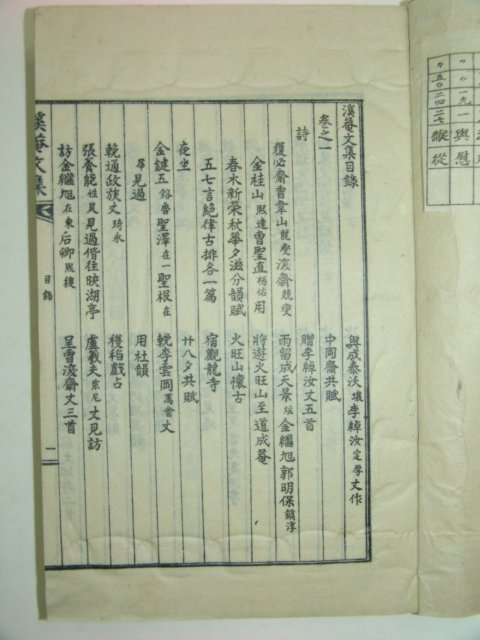 溪菴文集目錄
卷之一
詩
與成泰沃壤李綽汝定厚丈作
復必齋曹韋山龍燮溪齋兢燮
中阿齋共賦
金桂山熙達曹聖直柄佑用
贈李綽汝丈五首
春木新榮秋華夕滋分韻賦
雨留成天景金繼旭郭明保鎭淳
五七言絶律古排各一篇
將遊火旺山至道成菴
夜坐
火旺山懷古
金鍵五鎔魯聖澤在一聖根在
宿觀龍寺
尋見過
廿八夕共賦
輓通政族丈琦永
輓李雲岡萬會丈
用杜韻
張養能性見過偕往映湖亭
穫稻戲占
訪金繼旭在東后卿熙復
盧羲夫東尼丈見訪
呈曹溪齋丈三首
溪菴文集
目錄
一
與慰
縱從